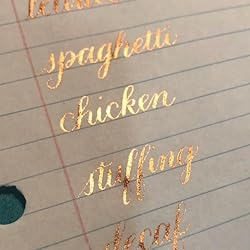 spaghetti
chicken
stuffing
decaf